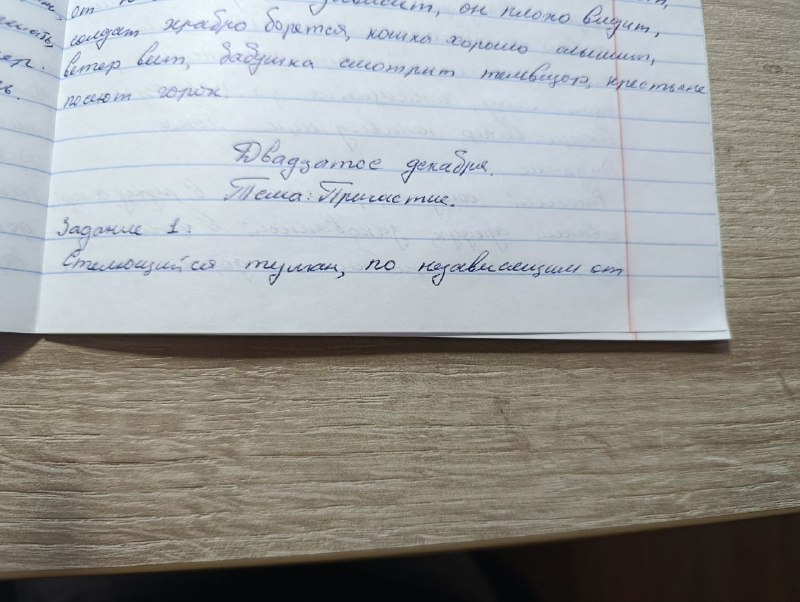 от он плохо видит,
солдат храбро борется, кошка хорошо слышит,
ер.
ветер веет, бабушка смотрит телевизор, крестьяне
посеют горох.
Двадзатое декабря.
Тема: Причастие.
Задание 1:
Стелющийся туман, по независящим от